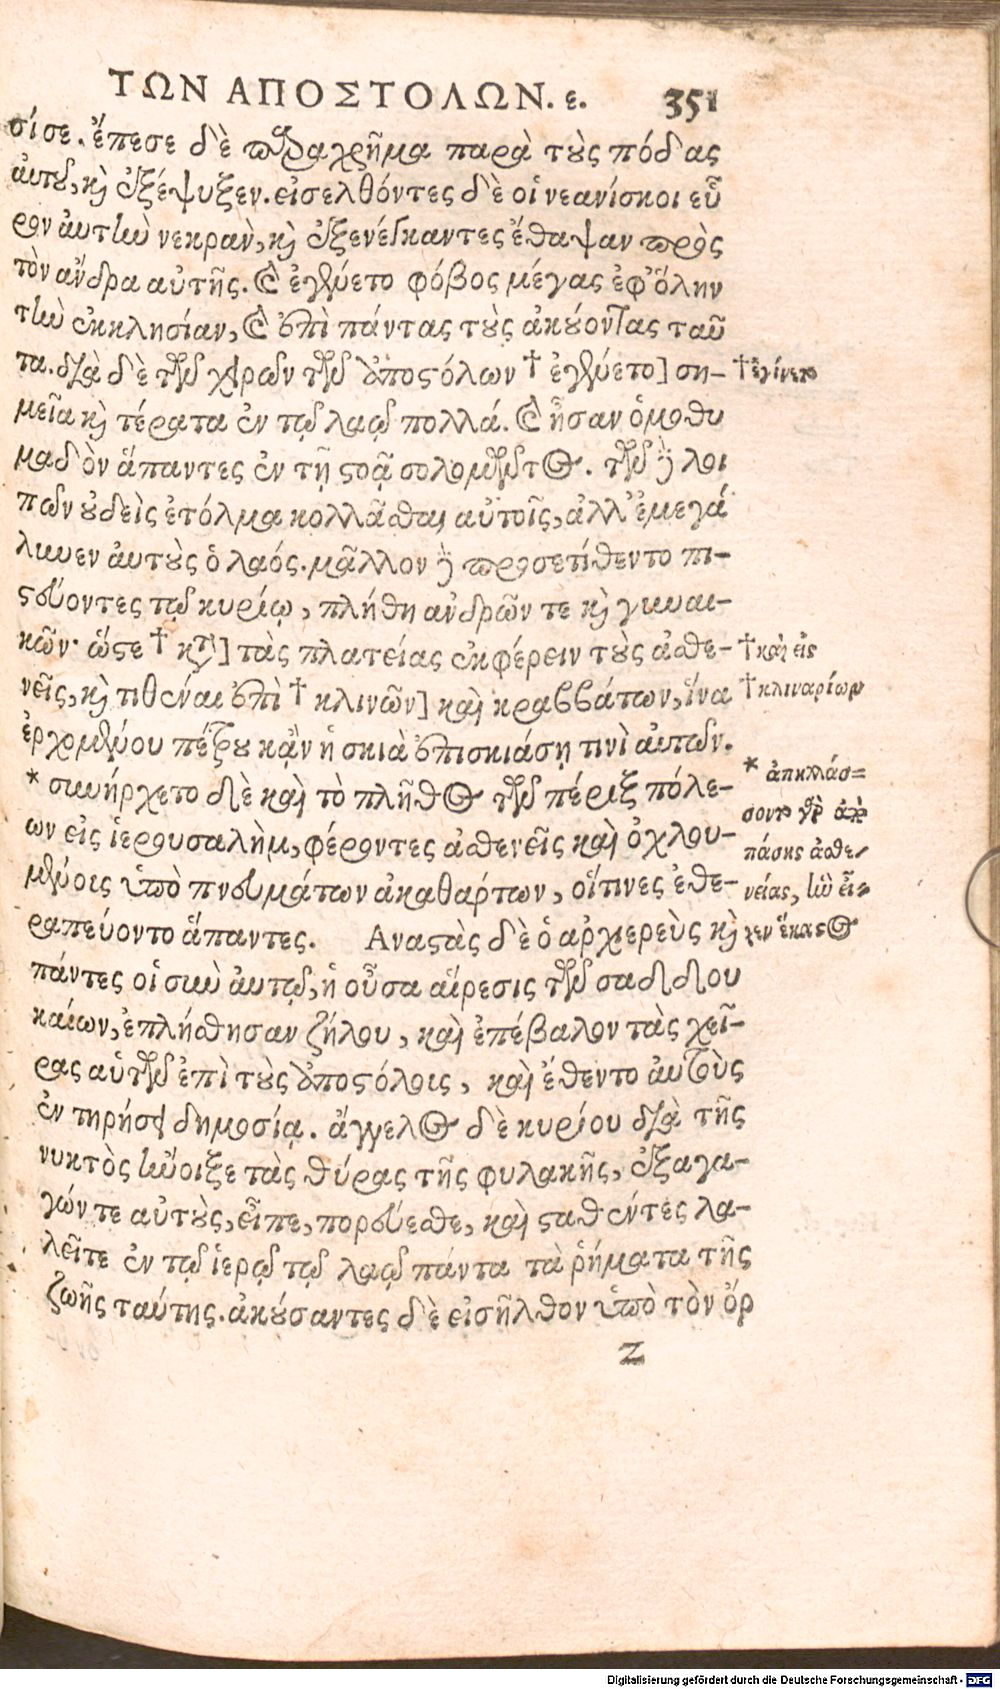 ΤΩΝ ΑΠΟΣΤΟΛΩΝ. ε. 351
σίσε. ἔπεσε δὲ παραχρῆμα παρὰ τοὺς πόδας
ἀυτοῦ, καὶ ἐξέψυξεν. εἰσελθόντες δὲ οἱ νεανίσκοι εὗ
ρον ἀυτὴν νεκρὰν, καὶ ἐξενέγκαντες ἔθαψαν πρὸς
τὸν ἄνδρα αὐτῆς. καὶ ἐγένετο φόβος μέγας ἐφ᾽ ὅλην
τὴν ἐκκλησίαν, καὶ ἐπὶ πάντας τοὺς ἀκούοντας ταῦ
τα. διὰ δὲ τῶν χειρῶν τῶν ἀποστόλων † ἐγένετο] ση-
μεῖα καὶ τέρατα ἐν τῷ λαῷ πολλά. καὶ ἦσαν ὁμοθυ
μαδὸν ἅπαντες ἐν τῇ στοᾷ σολομῶντος. τῶν δὲ λοι
πῶν οὐδεὶς ἐτόλμα κολλᾶσθαι αὐτοῖς, ἀλλ᾽ ἐμεγά
λυνεν ἀυτοὺς ὁ λαός. μᾶλλον δὲ προσετίθεντο πι-
στεύοντες τῷ κυρίῳ, πλήθη ἀνδρῶν τε καὶ γυναι-
κῶν· ὥστε † κατὰ] τὰς πλατείας ἐκφέρειν τοὺς ἀσθε-
νεῖς, καὶ τιθέναι ἐπὶ † κλινῶν] καὶ κραββάτων, ἵνα
ἐρχομένου πέτρου κἂν ἡ σκιὰ ἐπισκιάσῃ τινὶ ἀυτῶν.
* συνήρχετο δὲ καὶ τὸ πλῆθος τῶν πέριξ πόλε-
ων εἰς ἱερουσαλὴμ, φέροντες ἀσθενεῖς καὶ ὀχλου-
μένοις ὑπὸ πνευμάτων ἀκαθάρτων, οἵτινες ἐθε-
ραπεύοντο ἅπαντες. Αναστὰς δὲ ὁ ἀρχιερεὺς καὶ
πάντες οἱ σὺν ἀυτῷ, ἡ οὖσα αἵρεσις τῶν σαδδου
καίων, ἐπλήσθησαν ζήλου, καὶ ἐπέβαλον τὰς χεῖ-
ρας αὑτῶν ἐπὶ τοὺς ἀποστόλοις, καὶ ἔθεντο ἀυτοὺς
ἐν τηρήσει δημοσίᾳ. ἄγγελος δὲ κυρίου διὰ τῆς
νυκτὸς ἤνοιξε τὰς θύρας τῆς φυλακῆς, ἐξαγα-
γών τε αὐτοὺς, εἶπε, πορεύεσθε, καὶ σταθέντες λα-
λεῖτε ἐν τῷ ἱερῷ τῷ λαῷ πάντα τὰ ῥήματα τῆς
ζωῆς ταύτης. ἀκούσαντες δὲ εἰσῆλθον ὑπὸ τὸν ὄρ
Z
† ἐγίνετο
† καὶ εἰς
† κλιναρίων
* ἀπηλλάσ=
σοντο γὰρ ἀπὸ
πάσης ἀσθε-
νείας, ἣν εἶ-
χεν ἕκαστος
Digitalisierung gefördert durch die Deutsche Forschungsgemeinschaft - DFG